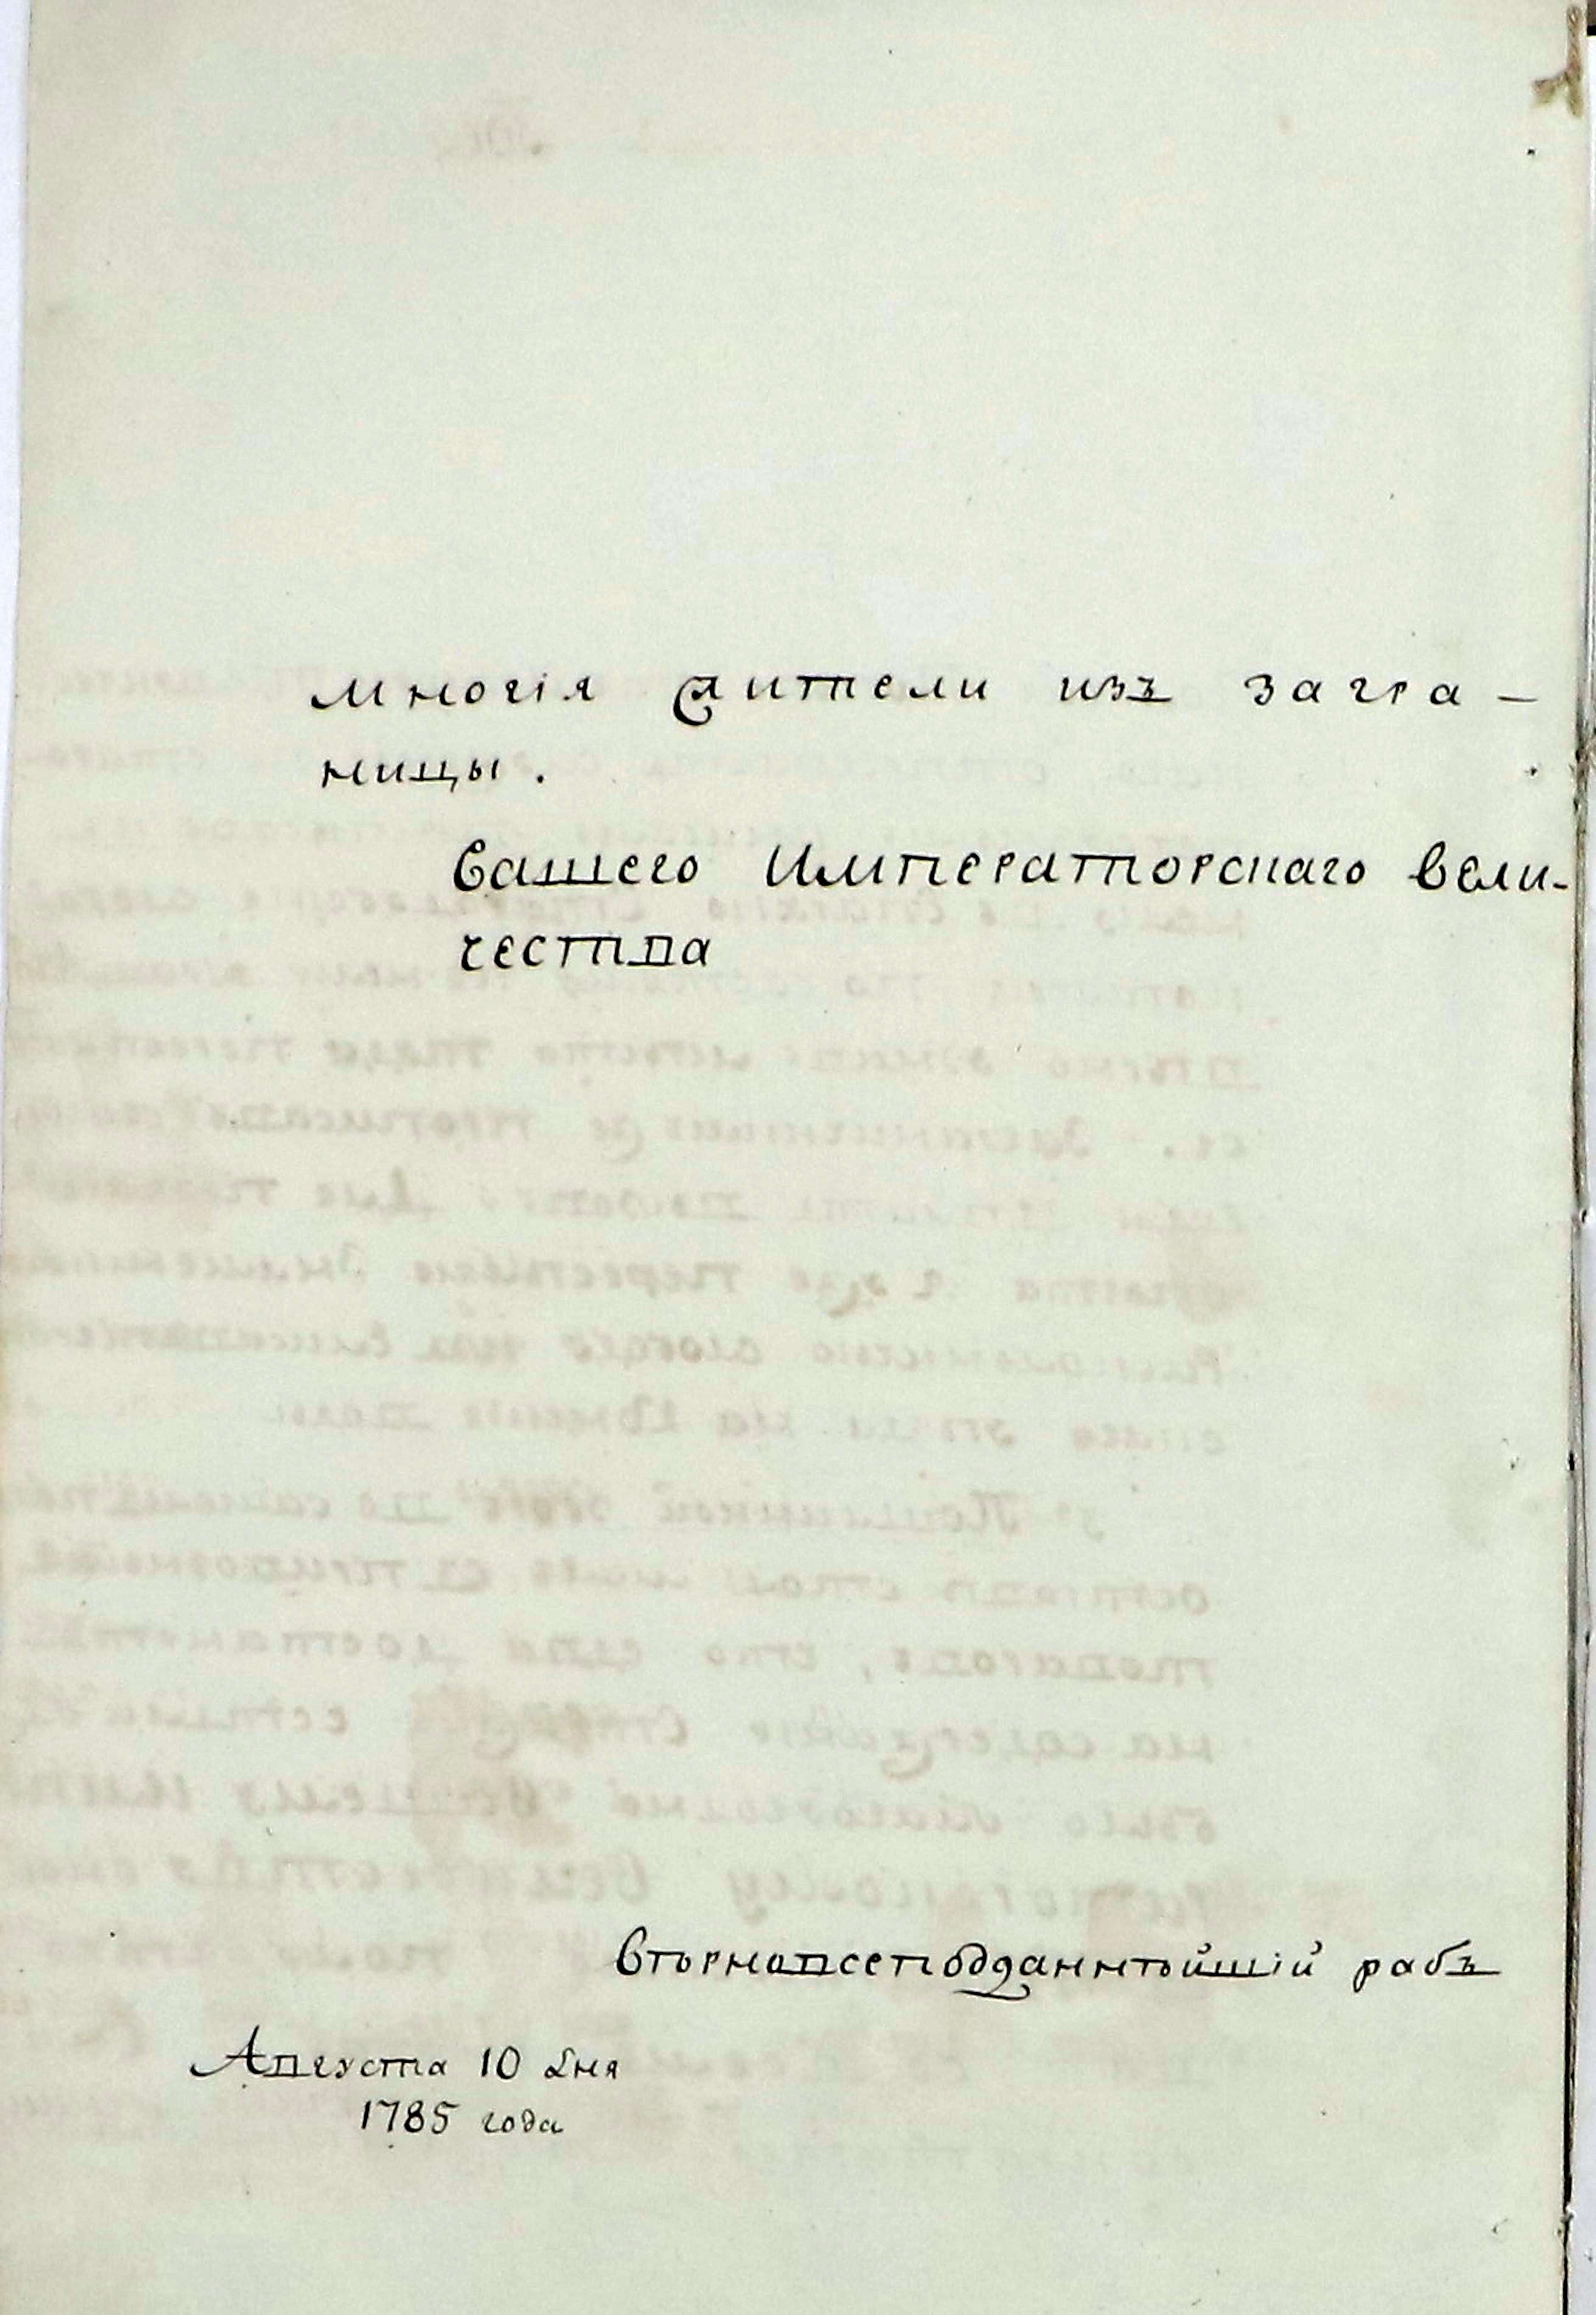 многія жители изъ загра-
ницы.
Вашего Императорскаго Вели-
чества
Вѣрноподданнѣйшій рабъ
Августа 10 дня
1785 года